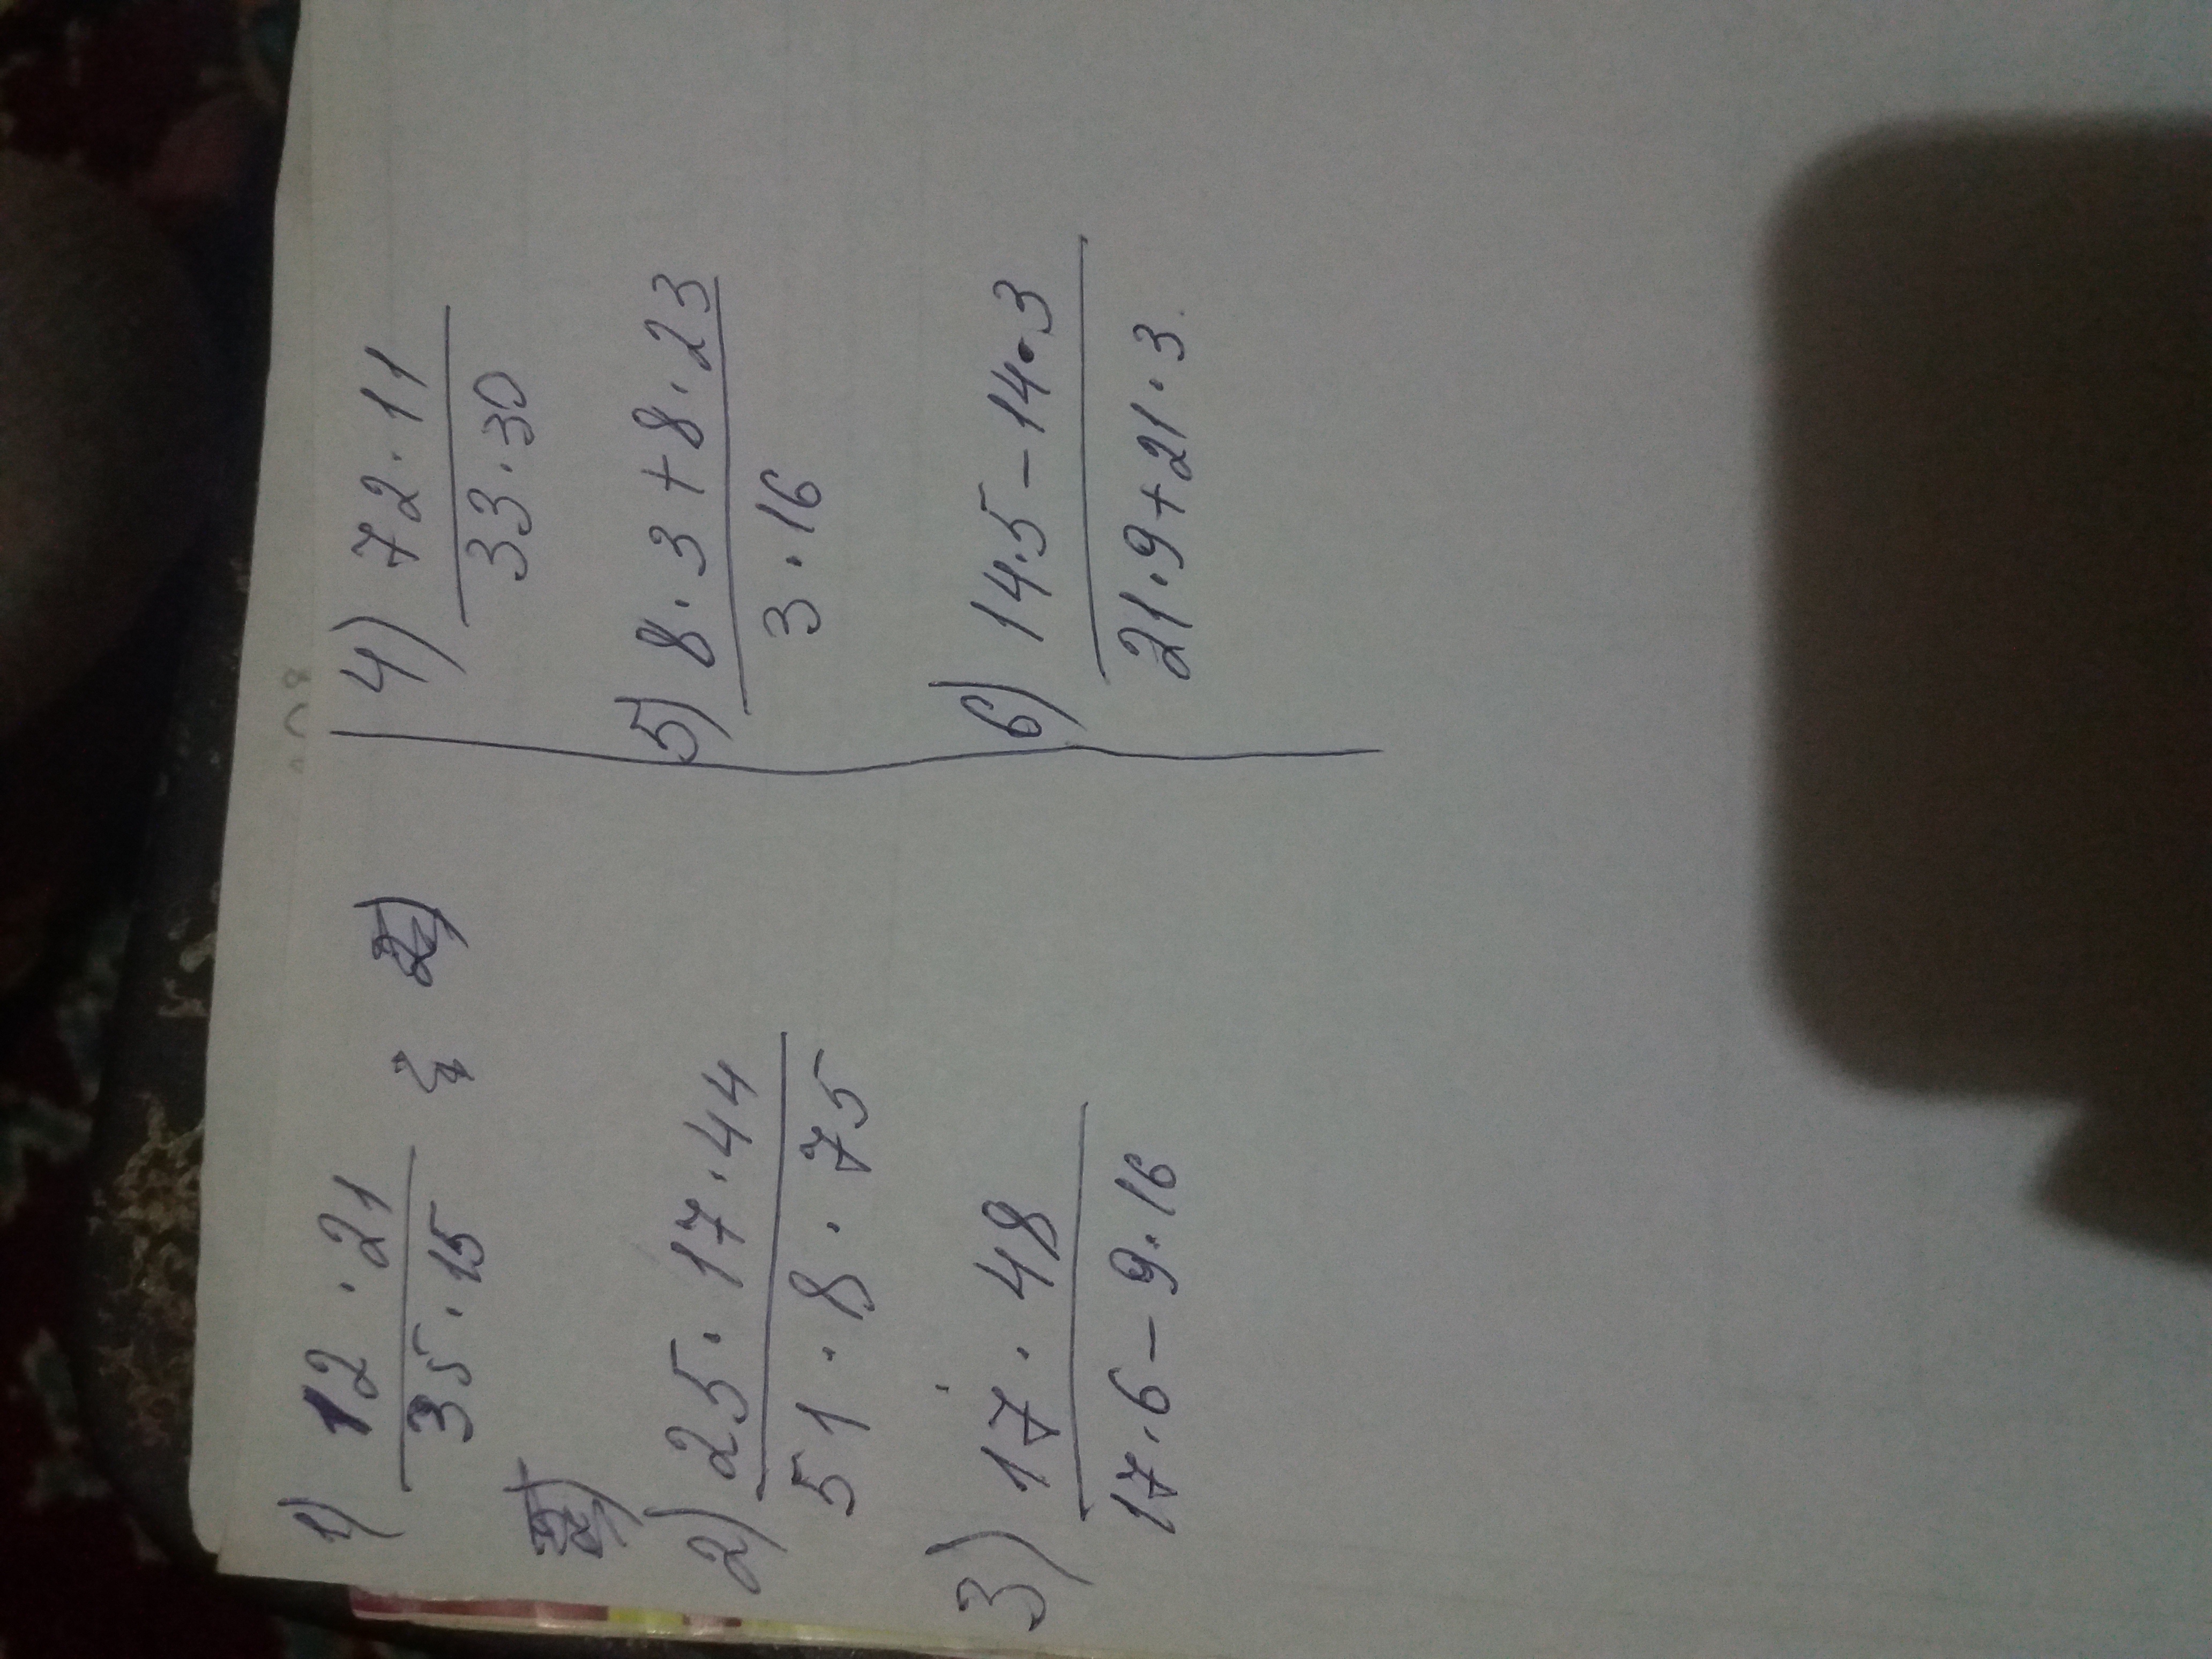 1) 12 · 21
35 · 15
2) 25 · 17 · 44
51 · 8 · 75
3) 17 · 48
17 · 6 - 9 · 16
4) 72 · 11
33 · 30
5) 8 · 3 + 8 · 23
3 · 16
6) 14 · 5 - 14 · 3
21 · 9 + 21 · 3